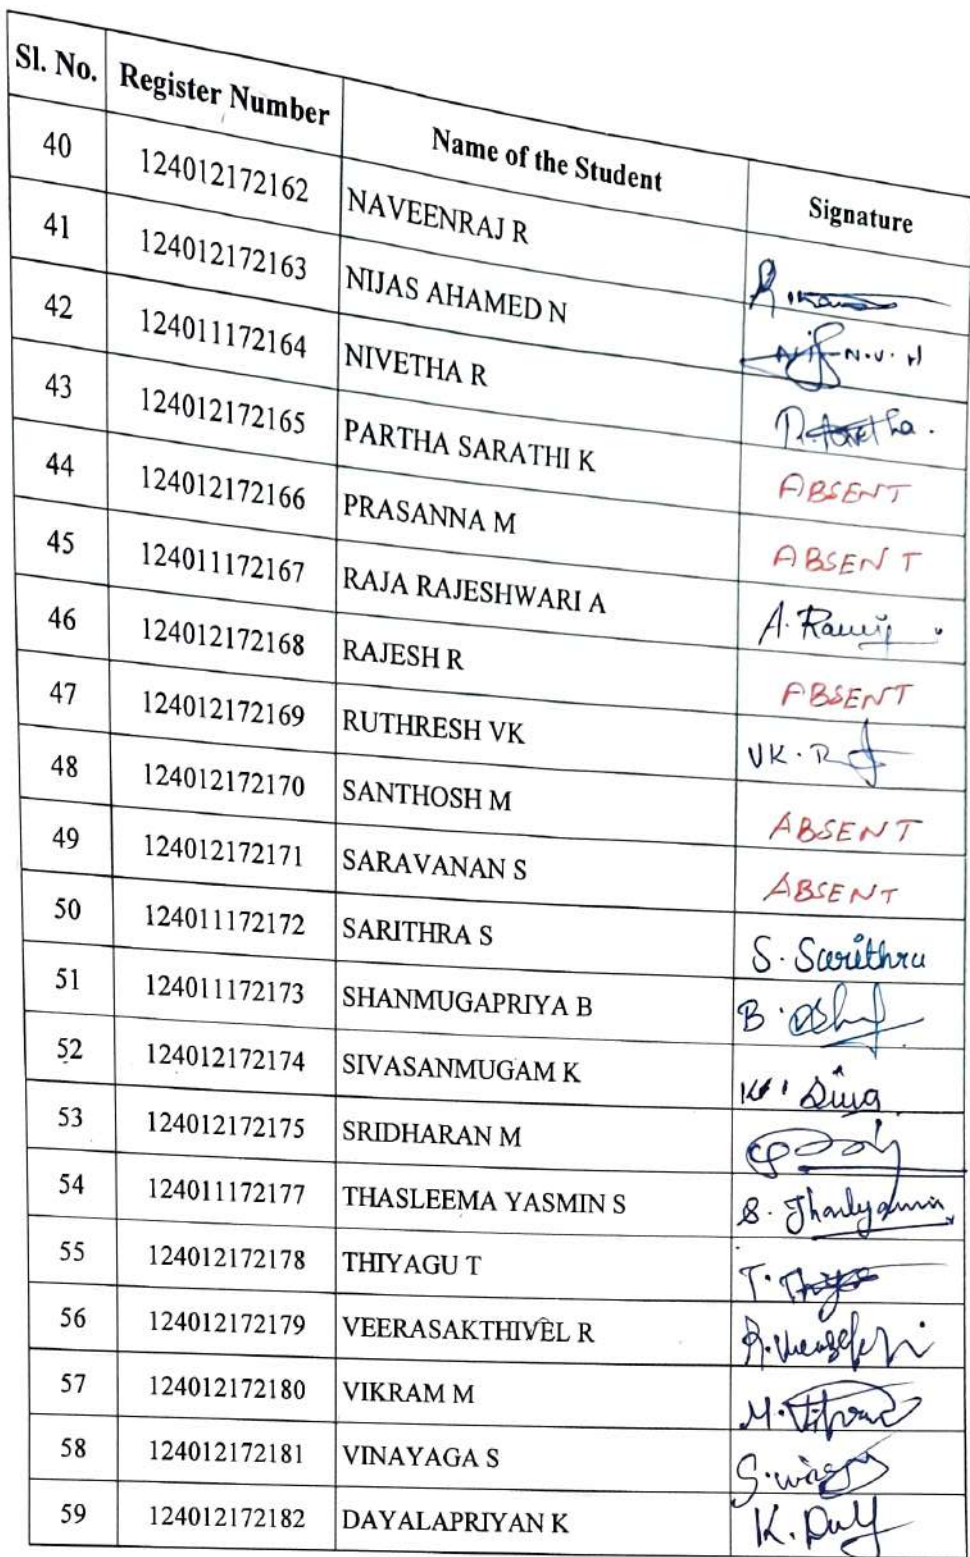 Sl. No. Register Number Name of the Student Signature
40 124012172162 NAVEENRAJ R
41 124012172163 NIJAS AHAMED N
42 124011172164 NIVETHA R
43 124012172165 PARTHA SARATHI K ABSENT
44 124012172166 PRASANNA M ABSENT
45 124011172167 RAJA RAJESHWARI A A.
46 124012172168 RAJESH R ABSENT
47 124012172169 RUTHRESH VK VK.
48 124012172170 SANTHOSH M ABSENT
49 124012172171 SARAVANAN S ABSENT
50 124011172172 SARITHRA S S. Sarithra
51 124011172173 SHANMUGAPRIYA B B.
52 124012172174 SIVASANMUGAM K Siva
53 124012172175 SRIDHARAN M
54 124011172177 THASLEEMA YASMIN S S.
55 124012172178 THIYAGU T T.
56 124012172179 VEERASAKTHIVEL R R.
57 124012172180 VIKRAM M M.
58 124012172181 VINAYAGA S S.
59 124012172182 DAYALAPRIYAN K K.